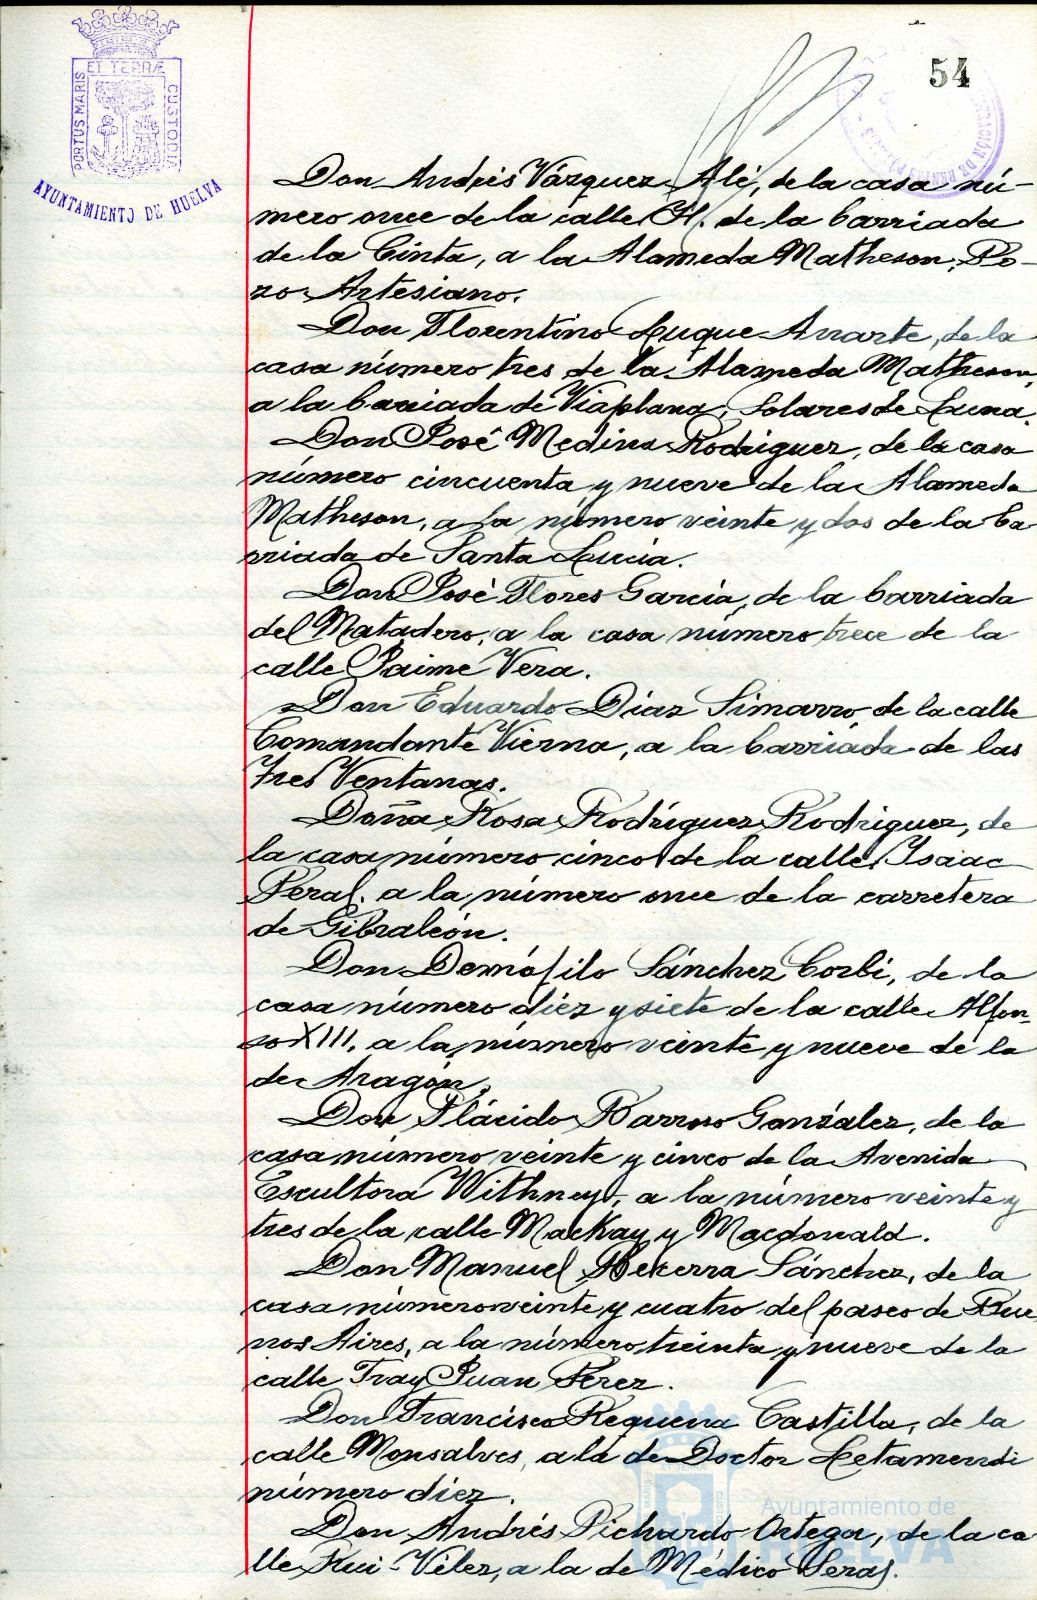 54
ET TERRÆ
PORTUS MARIS
CUSTODIA
AYUNTAMIENTO DE HUELVA
Don Andrés Vázquez Alé, de la casa nú-
mero once de la calle H. de la barriada
de la Cinta, a la Alameda Matheson, Po-
zo Artesiano.
Don Florentino Luque Anarte, de la
casa número tres de la Alameda Matheson,
a la barriada de Viaplana, Solares de Luna.
Don José Medina Rodriguez, de la casa
número cincuenta y nueve de la Alameda
Matheson, a la número veinte y dos de la ba
rriada de Santa Lucia.
Don José Flores García, de la barriada
del Matadero, a la casa número trece de la
calle Jaime Vera.
Don Eduardo Díaz Simarro, de la calle
Comandante Vierna, a la barriada de las
Tres Ventanas.
Doña Rosa Rodríguez Rodriguez, de
la casa número cinco de la calle Isaac
Peral, a la número once de la carretera
de Gibraleón.
Don Demófilo Sánchez Corbi, de la
casa número diez y siete de la calle Alfon-
so XIII, a la número veinte y nueve de la
de Aragón.
Don Plácido Barroso González, de la
casa número veinte y cinco de la Avenida
Escultora Withney, a la número veinte y
tres de la calle Mackay y Macdonald.
Don Manuel Becerra Sánchez, de la
casa número veinte y cuatro del paseo de Bue
nos Aires, a la número treinta y nueve de la
calle Fray Juan Perez.
Don Francisco Requena Castilla, de la
calle Monsalves, a la de Doctor Letamendi
número diez.
Don Andrés Pichardo Ortega, de la ca
lle Rui-Vélez, a la de Médico Seras.
Ayuntamiento de
HUELVA